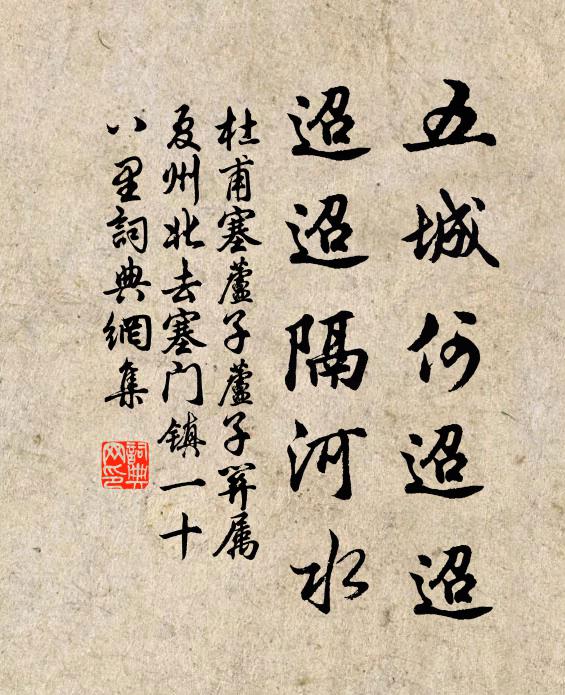 五城何迢迢
迢迢隔河水
杜甫塞蘆子蘆子關属
夏州北去塞门镇一十
八里詞典網集
詞典网印